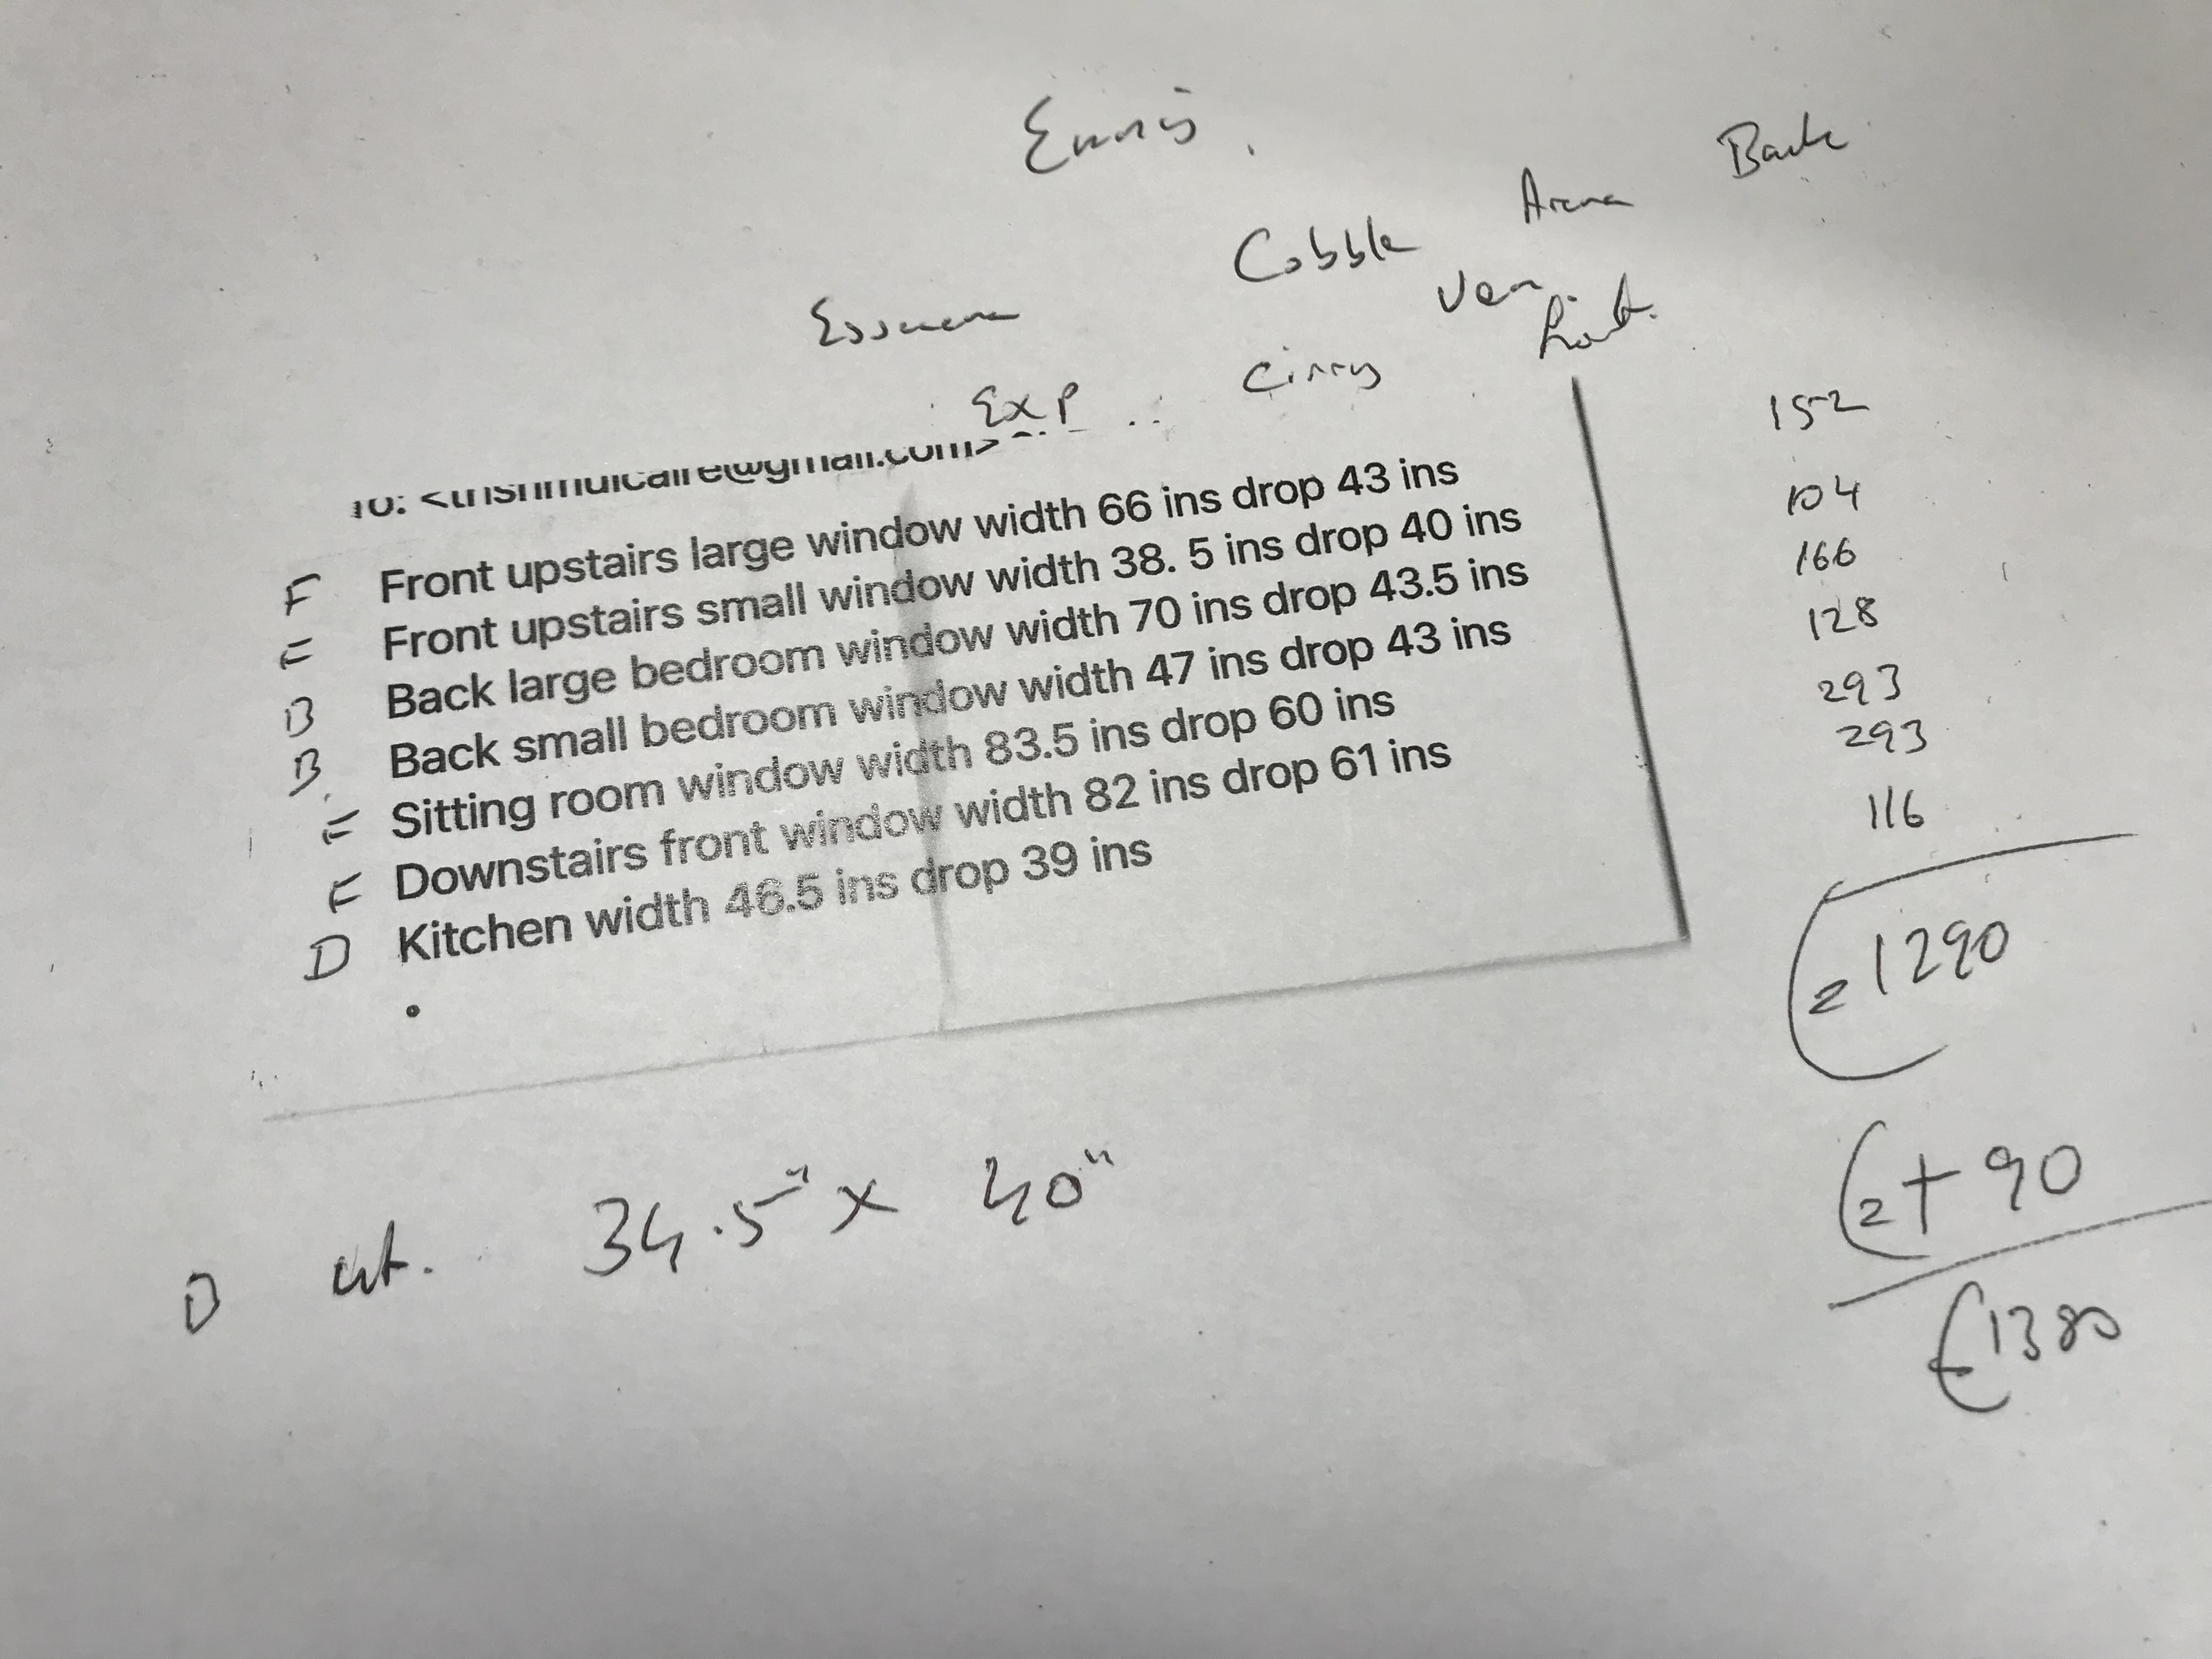 Ennis.
Back
Arena
Cobble
Ven
EXP Cirrus
152
Front upstairs large window width 66 ins drop 43 ins
104
F Front upstairs small window width 38. 5 ins drop 40 ins
166
F Back large bedroom window width 70 ins drop 43.5 ins
128
B Back small bedroom window width 47 ins drop 43 ins
293
B Sitting room window width 83.5 ins drop 60 ins
293
F Downstairs front window width 82 ins drop 61 ins
116
F Kitchen width 46.5 ins drop 39 ins
D
1290
+ 90
€1380
34.5" x 40"